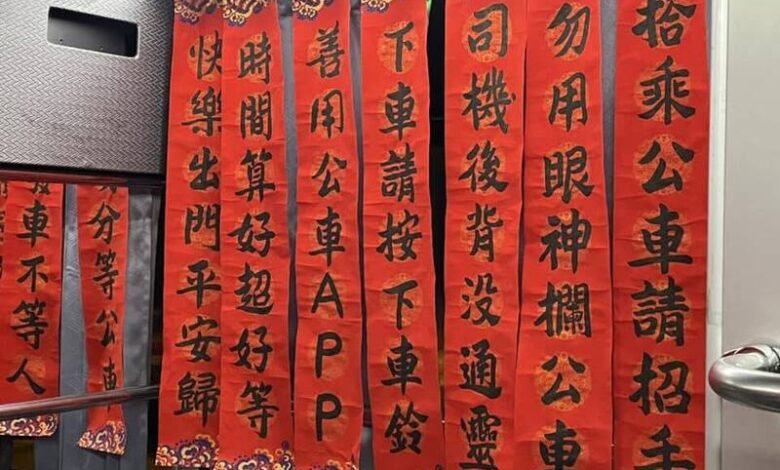 搭乘公車請招手
勿用眼神欄公車
司機後背没通靈
下車請按下車鈴
善用公車APP
時間算好超好等
快樂出門平安歸
分等公車
車不等人